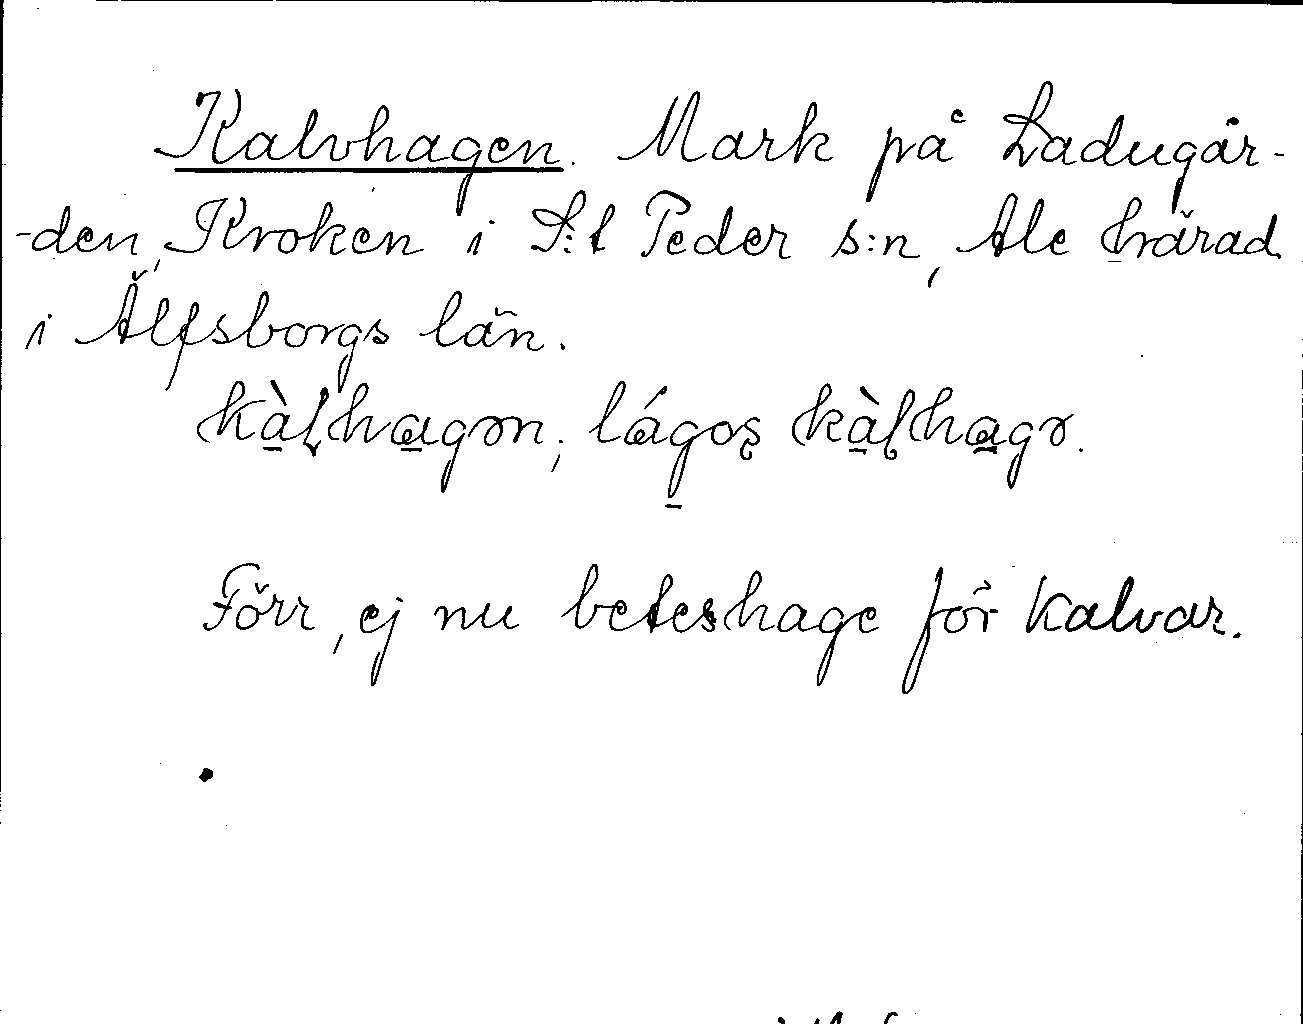 Kalvhagen. Mark på Ladugår-
-den, Kroken i S:t Peder s:n, Ale härad
i Älfsborgs län.
kàlhagən; lágos kàlhagə.
Förr, ej nu beteshage för kalvar.